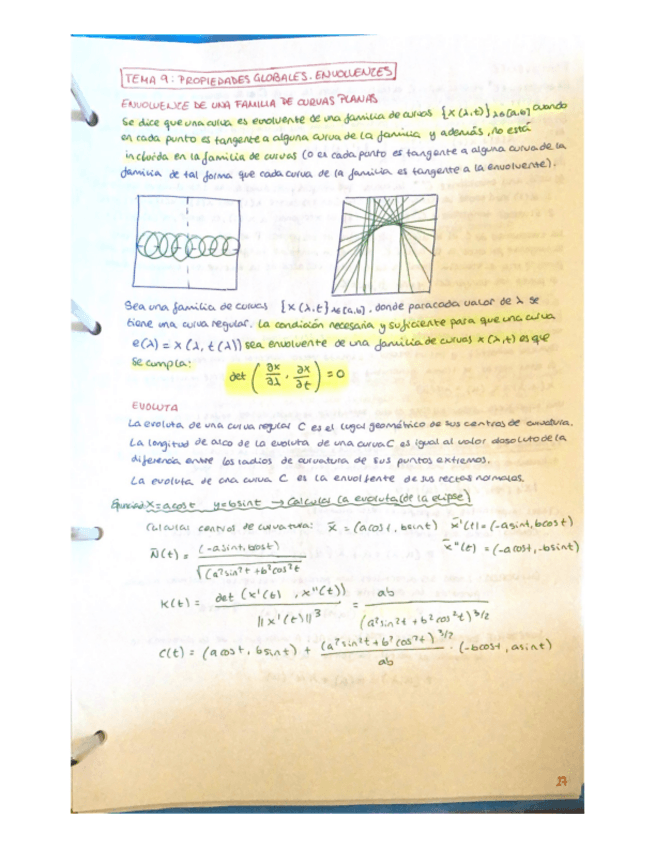 TEMA 9: PROPIEDADES GLOBALES. ENVOLVENTES
ENVOLVENTE DE UNA FAMILIA DE CURVAS PLANAS
Se dice que una curva es evolvente de una familia de curvas {x(λ,t)} λ∈[a,b] cuando
en cada punto es tangente a alguna curva de la familia y además, no está
incluida en la familia de curvas (o es cada punto es tangente a alguna curva de la
familia de tal forma que cada curva de la familia es tangente a la envolvente).
Sea una familia de curvas {x(λ,t} λ∈[a,b], donde para cada valor de λ se
tiene una curva regular. La condición necesaria y suficiente para que una curva
e(λ) = x(λ, t(λ)) sea envolvente de una familia de curvas x(λ,t) es que
se cumpla:
det (∂x/∂λ, ∂x/∂t) = 0
EVOLUTA
La evoluta de una curva regular C es el lugar geométrico de sus centros de curvatura.
La longitud de arco de la evoluta de una curva C es igual al valor absoluto de la
diferencia entre los radios de curvatura de sus puntos extremos.
La evoluta de una curva C es la envolvente de sus rectas normales.
x=acost y=bsint → Calcular la evoluta (de la elipse)
Calcular centros de curvatura: x̄ = (acost, bsint) x̄'(t) = (-asint, bcost)
N̄(t) = (-asint, bcost) / √(a²sin²t + b²cos²t x̄''(t) = (-acost, -bsint)
K(t) = det (x'(t), x''(t)) / ||x'(t)||³ = ab / (a²sin²t + b²cos²t)^3/2
C(t) = (acost, bsint) + (a²sin²t + b²cos²t)^3/2 / ab · (-bcost, asint)
27